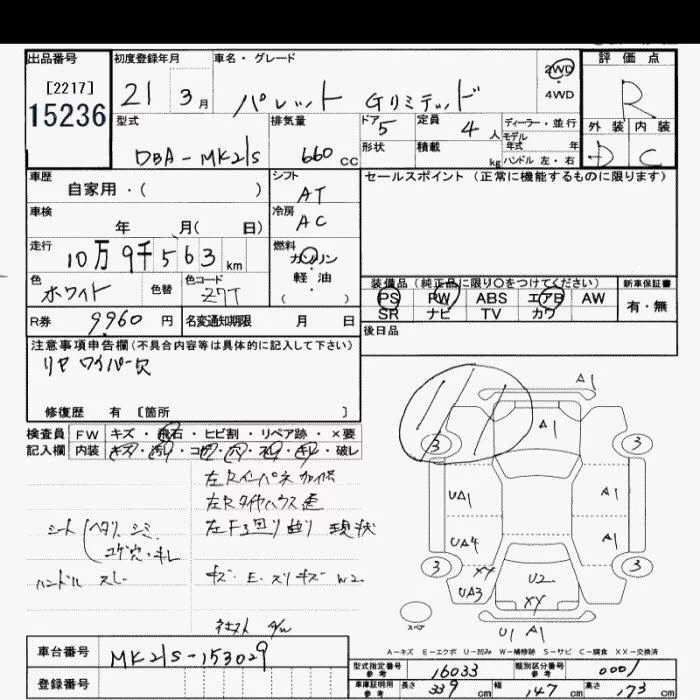 出品番号
[2217]
15236
初度登録年月
21 3月
車名・グレード
パレット Gリミテッド
2WD
4WD
評価点
R
外装 内装
D C
型式
DBA-MK21S
排気量
660 CC
ドア 5
形状
定員 4 人
積載 kg
ディーラー・並行
モデル
年式 年
ハンドル 左・右
車歴
自家用・( )
シフト
AT
セールスポイント(正常に機能するものに限ります)
車検
年 月( 日)
冷房
AC
走行
10万9千563 km
燃料
ガソリン
軽・油
( )
色
ホワイト
色替
色コード
Z7T
装備品(純正品に限り○をつけてください)
PS PW ABS エアB AW
SR ナビ TV カワ
新車保証書
有・無
R券
9960 円
名変通知期限 月 日
後日品
注意事項申告欄(不具合内容等は具体的に記入して下さい)
リヤ ワイパー欠
修復歴 有 [箇所 ]
検査員
記入欄
FW キズ・飛石・ヒビ割・リペア跡・×要
内装 キズ・汚れ・コゲ・穴・スレ・キレ・破レ
左Rインパネ
左Rタイヤハウス
左F3回り曲り 現状
シート ヘタリ、シミ
コゲ穴・キレ
ハンドル スレ
キズ・E・スリキズ W2
A1
A1
3 3
UA1 A1
UA4 A1
3 XY 3
UA3
U2
XY
U1 A1
スペア
A-キズ E-エクボ U-凹み W-補修跡 S-サビ C-腐食 XX-交換済
車台番号
MK21S-153029
登録番号
型式指定番号
参考
16033
類別区分番号
参考
0001
車庫証明用
参考
長さ 339 cm
幅 147 cm
高さ 173 cm